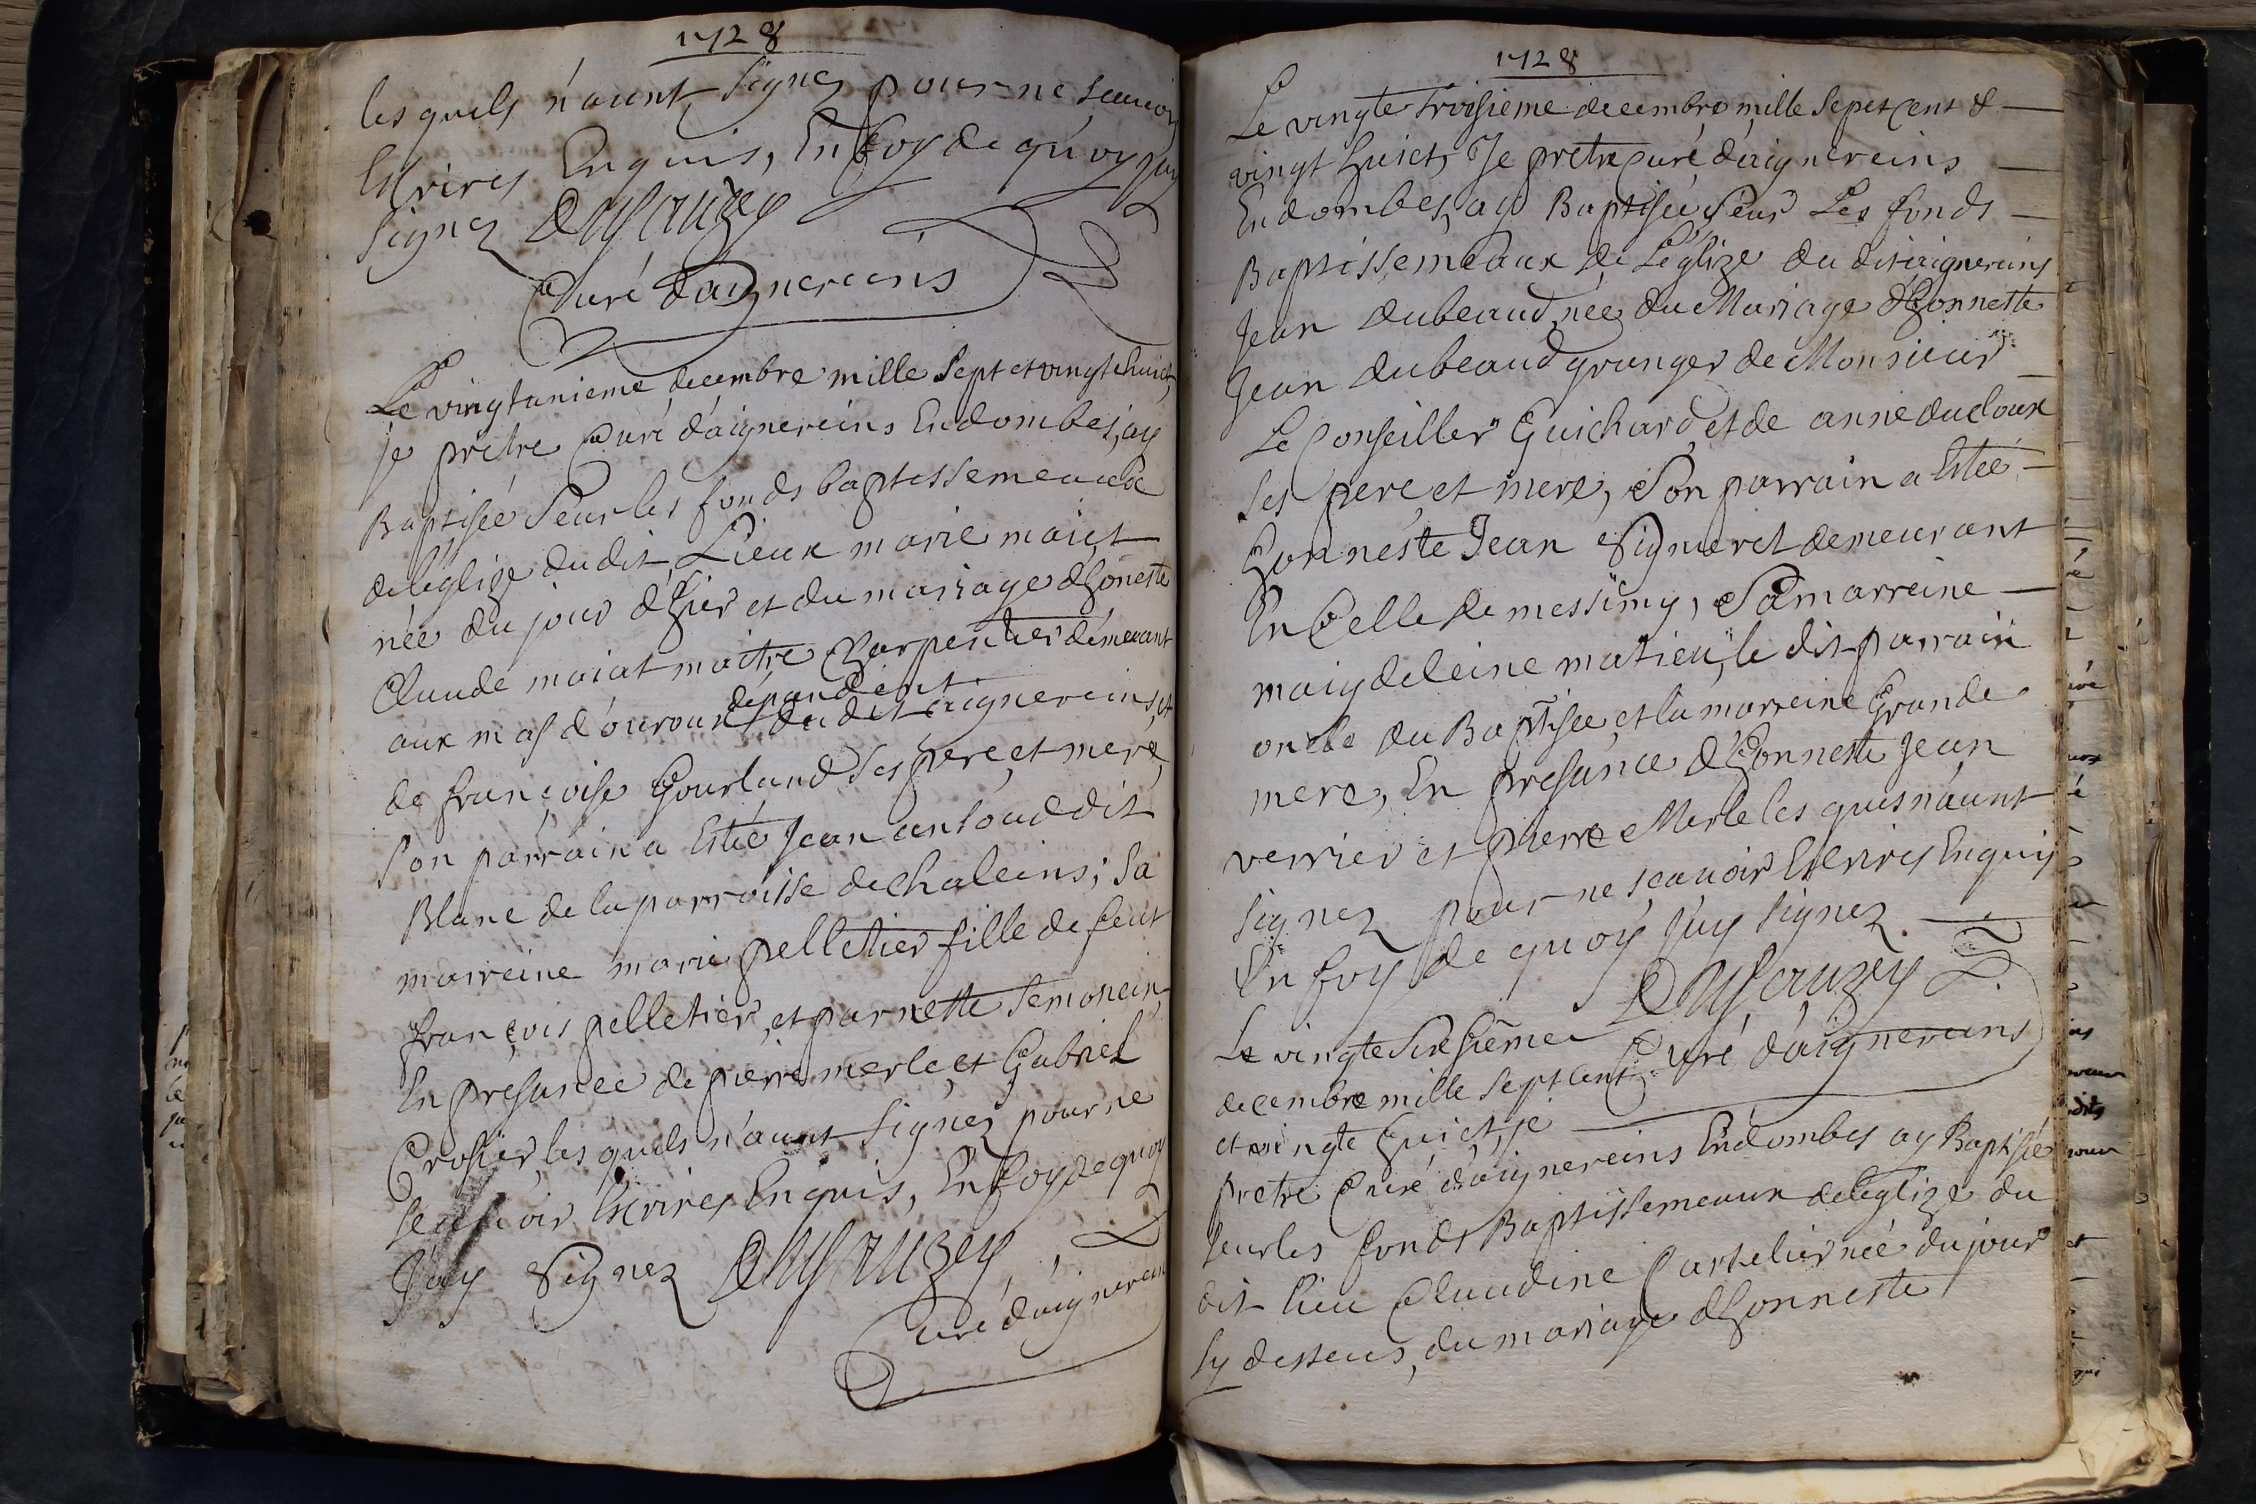 1728
les quels n'aunt signez pour ne sceauoir
Escrires Enquis, En foy de qu'oy j'ay
signez Dusauzey
Curé d'aignereins
Le vingtunieme decembre mille sept et vingt huict,
je prètre Curé d'aignereins En dombes, ay
Baptisée seur les fonds baptissemeaux
de l'eglize du dit Lieux marie maiet
née du jour d'hier et du mariage d'honeste
Claude maiat maitre Charpentier demeurant
aux mas d'ouroux dépandent du dit aignereins, et
de françoise Gourland ses pere, et mere,
son parrain a Estée Jean antoud dit
Blanc de la parroisse de chaleins; sa
marreine marie pelletier fille de feut
françois pelletier, et parnette semonein,
En presance de pierre merle, et Gabriel
Crosier, les quels n'aunt signez pour ne
sceauoir Escrires Enquis, En foy de quoy
J'ay signez Dusauzey
Curé d'aignereins
1728
Le vingte troisieme decembre mille sept Cent &
vingt huict, Je prètre Curé d'aignereins
En dombes, ay Baptisée seur Les fonds
Baptissemeaux de L'églize du dit aignereins
Jean dubeaud, née du Mariage d'honneste
Jean dubeaud granger de Monsieur
Le Conseiller Guichard, et de anne ducloux
ses pere, et mere, son parrain a Estée
honneste Jean Signeret demeurant
En Celle de messimy, Sa marreine
maigdeleine matieu, le dit parrain
oncle du Baptisée, et la marreine Grande
mere, En presance d'honneste Jean
verrier et pierre Merle les quis n'aunt
signez pour ne sçauoir Escrires Enquis
En foy de quoy j'ay signez
Dusauzey
Curé d'aignereins
Le vingte sixsieme
decembre mille sept Cent
et vingte huict, je
pretre Curé d'aignereins En dombes ay Baptisée
seur les fonds Baptissemeaux de l'eglize du
dit lieu Claudine Cartelier née du jour
sy desseus, du mariage d'honneste